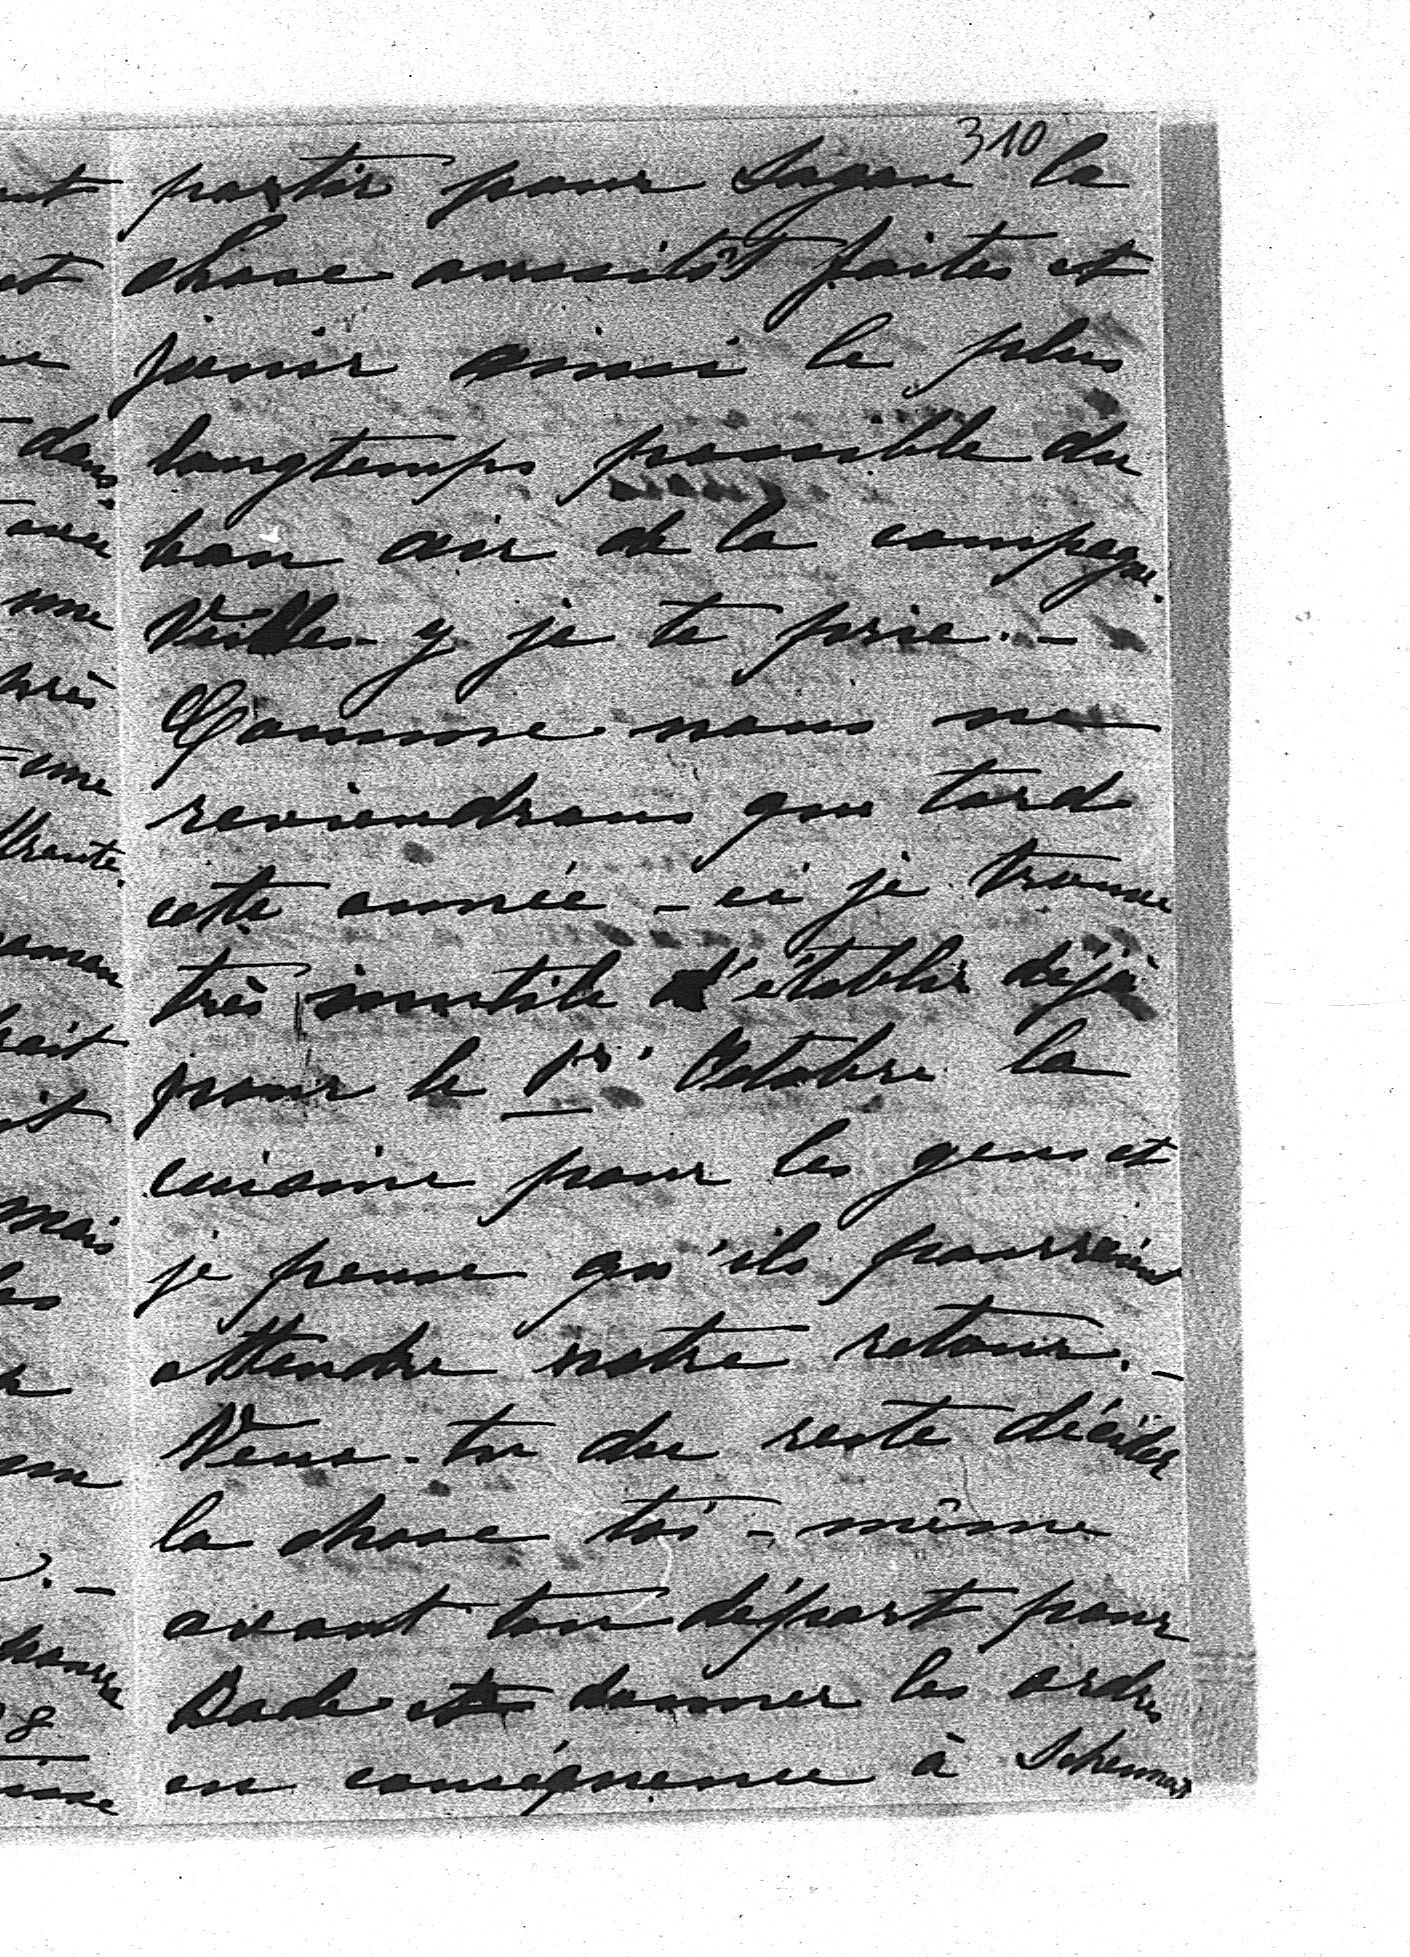 310
partir pour Sagan la
chose aussitôt faites et
jouir ainsi le plus
longtemps possible du
bon air de la campagne.
Veilles-y je te prie. -
Comme nous ne
reviendrons que tard
cette année-ci je trouve
très inutile d'établir déjà
pour le 1r. Octobre la
cuisine pour les gens et
je pense qu'ils pourraient
attendre notre retour. -
Veux-tu du reste décider
la chose toi-même
avant ton départ pour
Bade et donner les ordres
en conséquence à